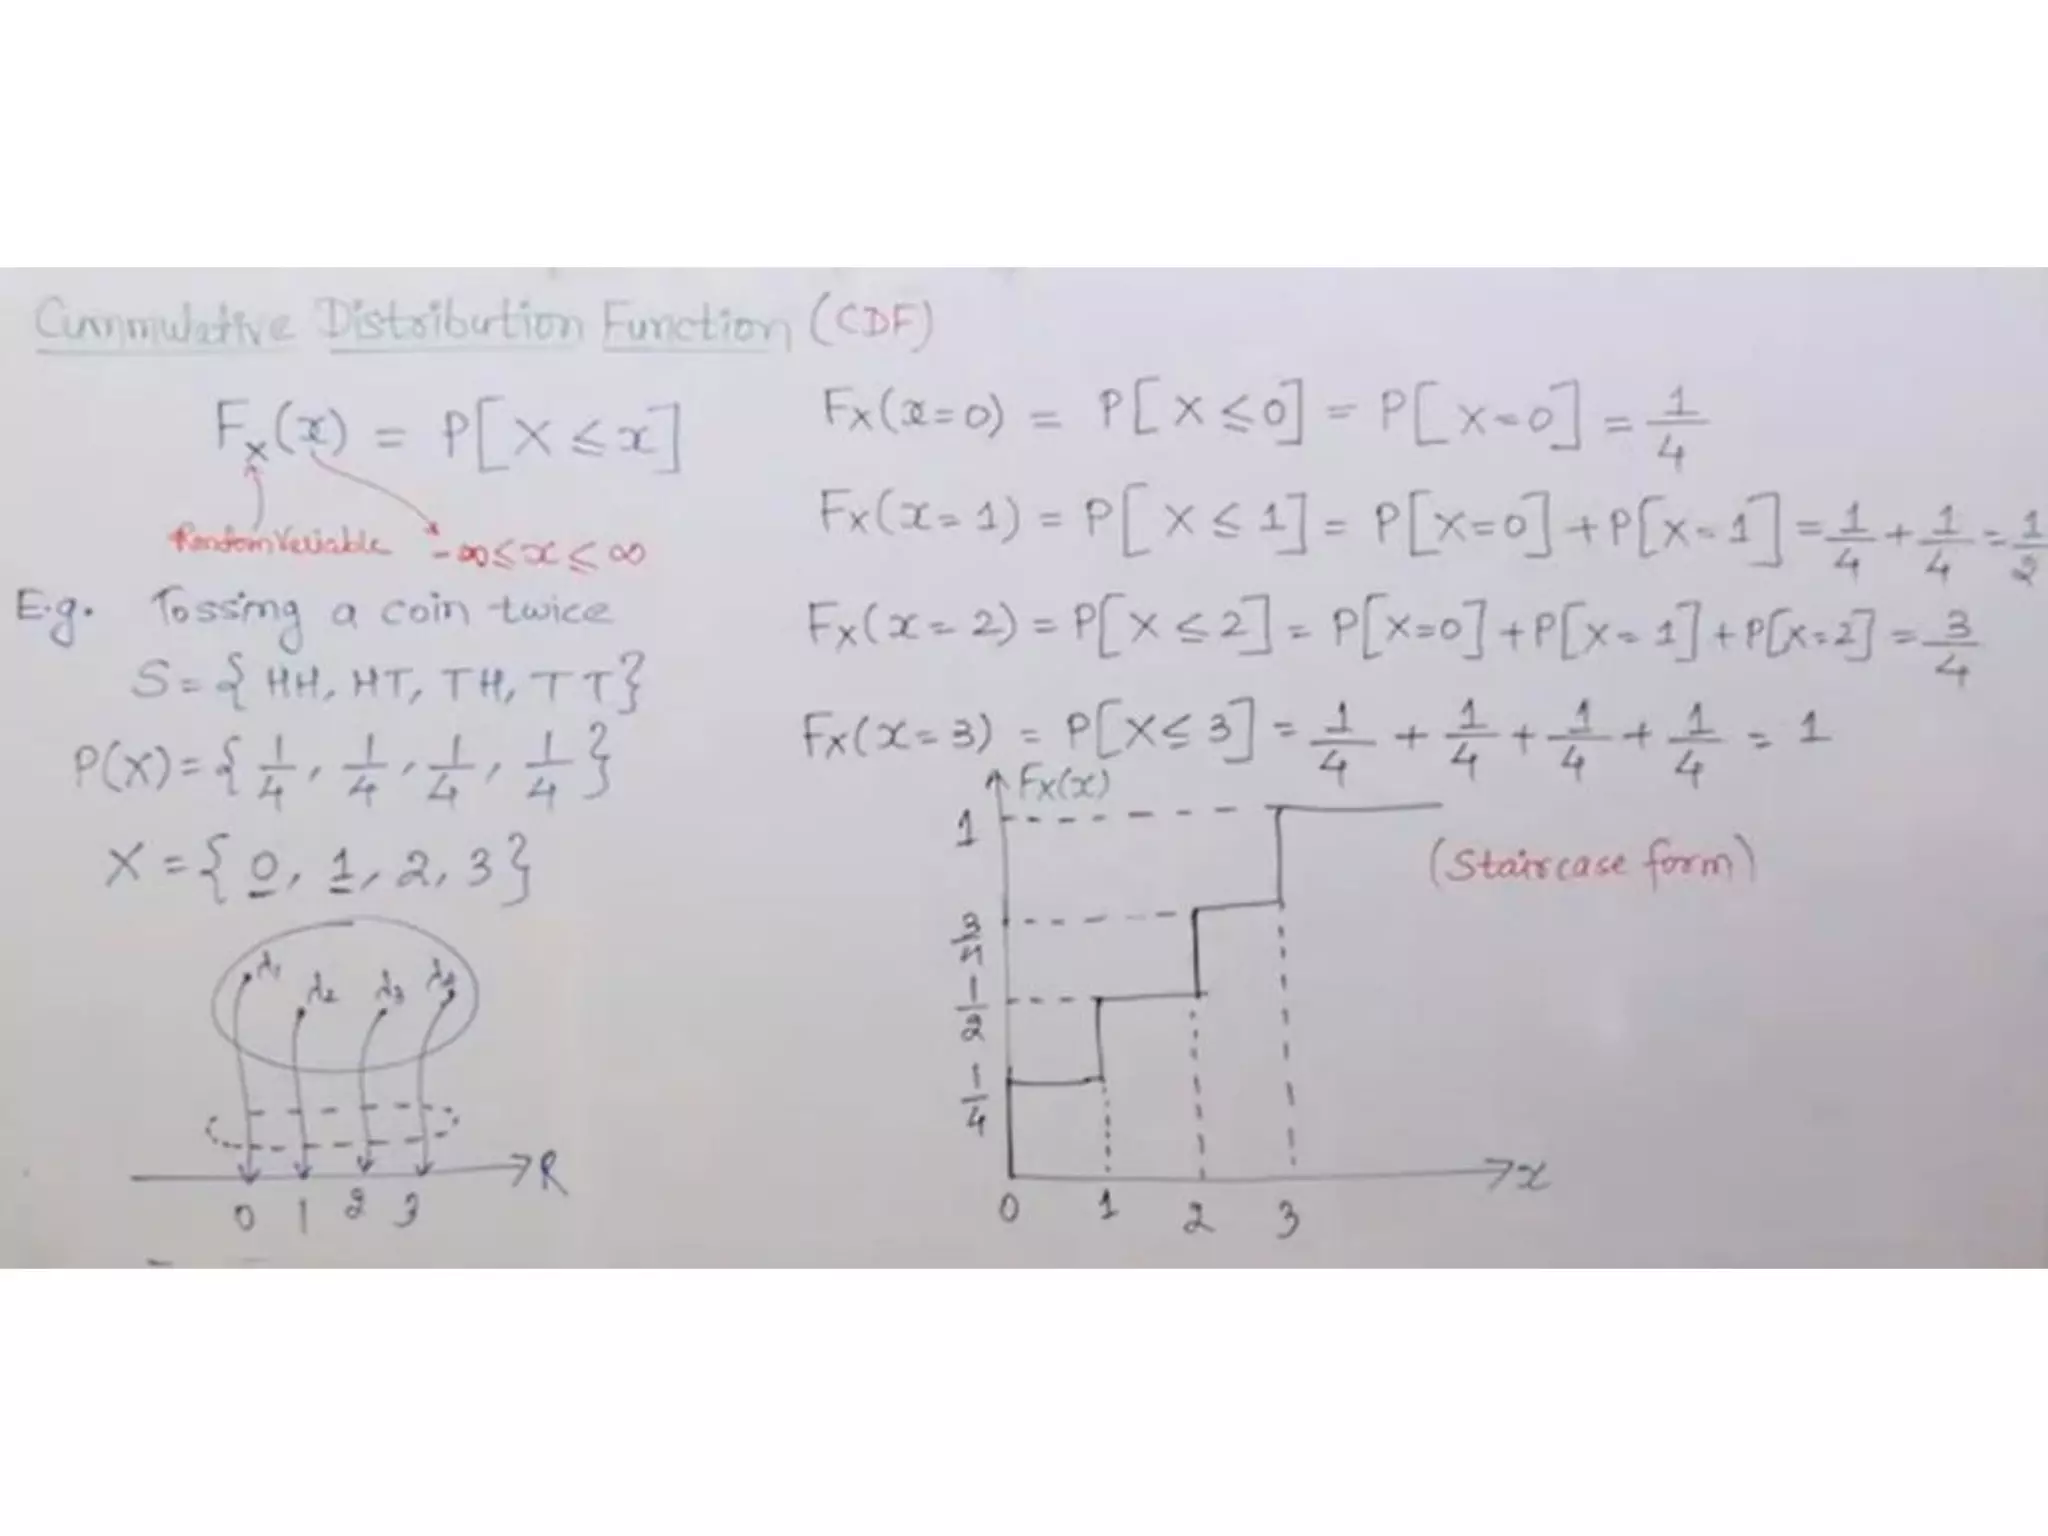 Cummulative Distribution Function (CDF)
Fx(x) = P[X ≤ x]
Random Variable
-∞ ≤ x ≤ ∞
E.g. Tossing a coin twice
S = { HH, HT, TH, TT}
P(X) = { 1/4, 1/4, 1/4, 1/4 }
X = { 0, 1, 2, 3}
λ1 λ2 λ3 λ4
R
0 1 2 3
Fx(x=0) = P[X ≤ 0] = P[X=0] = 1/4
Fx(x=1) = P[X ≤ 1] = P[X=0] + P[X=1] = 1/4 + 1/4 = 1/2
Fx(x=2) = P[X ≤ 2] = P[X=0] + P[X=1] + P[X=2] = 3/4
Fx(x=3) = P[X ≤ 3] = 1/4 + 1/4 + 1/4 + 1/4 = 1
Fx(x)
1
(Staircase form)
3/4
1/2
1/4
x
0 1 2 3